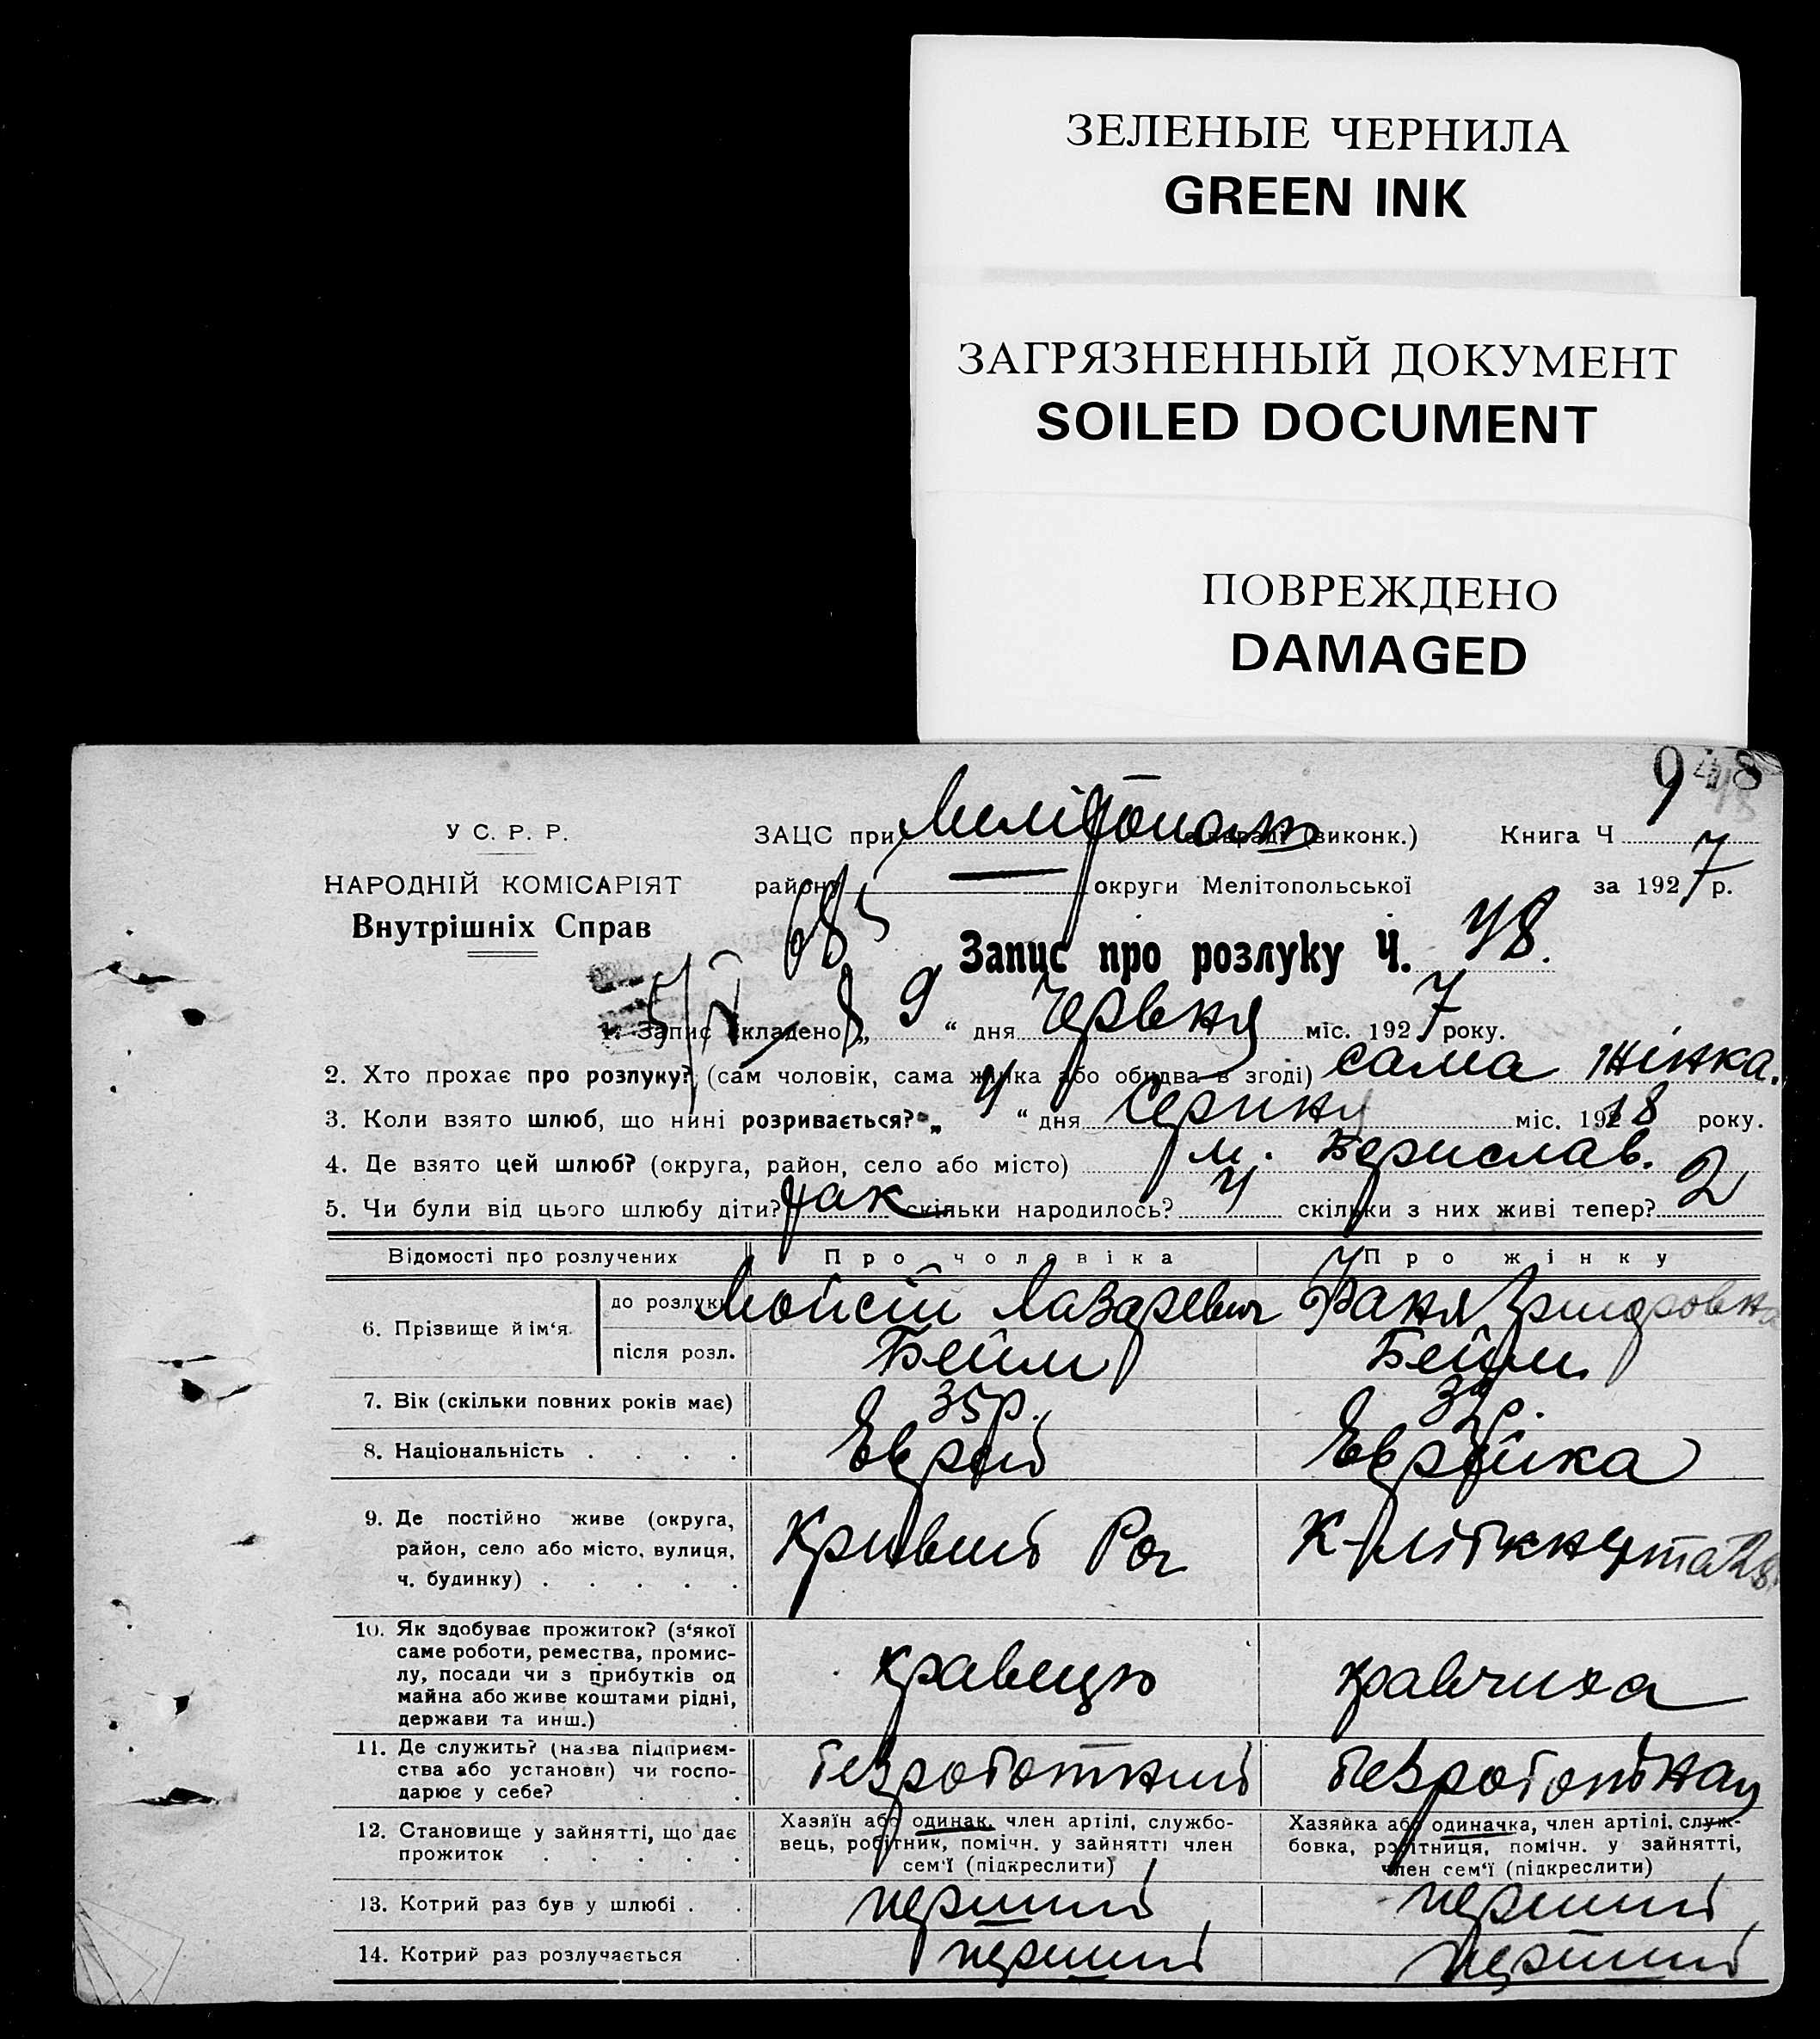 ЗЕЛЕНЫЕ ЧЕРНИЛА
GREEN INK
ЗАГРЯЗНЕННЫЙ ДОКУМЕНТ
SOILED DOCUMENT
ПОВРЕЖДЕНО
DAMAGED
948
У С. Р. Р.
НАРОДНІЙ КОМІСАРІЯТ
Внутрішніх Справ
ЗАЦС при Мелітополь (виконк.) Книга Ч
району — округи Мелітопольської за 1927 р.
Запис про розлуку Ч. 48.
1. Запис складено „ 9 “ дня Червня міс. 1927 року.
2. Хто прохає про розлуку? (сам чоловік, сама жінка або обидва в згоді) сама жінка.
3. Коли взято шлюб, що нині розривається? „ 4 “ дня Серпня міс. 1918 року.
4. Де взято цей шлюб? (округа, район, село або місто) м. Берислав.
5. Чи були від цього шлюбу діти? так скільки народилось? 4 скільки з них живі тепер? 2
Відомості про розлучених Про чоловіка Про жінку
6. Прізвище й ім‘я. до розлуки Мойсій Лазаревич Фаня
після розл. Бейм Бейм
7. Вік (скільки повних років має) 35 р. 32 р.
8. Національність . . . . Еврей Еврейка
9. Де постійно живе (округа,
район, село або місто, вулиця,
ч. будинку) . . . . . Кривий Рог
10. Як здобуває прожиток? (з‘якої
саме роботи, ремества, промис-
лу, посади чи з прибутків од
майна або живе коштами рідні,
держави та инш.) кравець кравчиха
11. Де служить? (назва підприєм-
ства або установи) чи госпо-
дарює у себе? безроботний безроботная
12. Становище у зайнятті, що дає
прожиток . . . . .
Хазяїн або одинак, член артілі, службо-
вець, робітник, помічн. у зайнятті член
сем‘ї (підкреслити)
Хазяйка або одиначка, член артілі, служ-
бовка, робітниця, помічн. у зайнятті,
член сем‘ї (підкреслити)
13. Котрий раз був у шлюбі . . перший перший
14. Котрий раз розлучається . перший перший